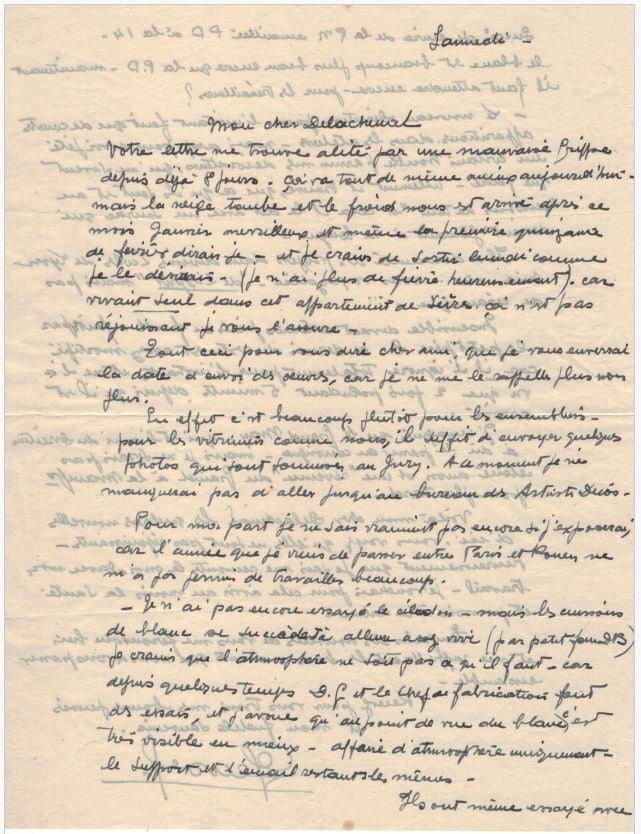 Samedi -
Mon cher Delachenal
Votre lettre me trouve alité par une mauvaise Grippe
depuis déjà 8 jours. ça va tout de même mieux aujourd'hui -
mais la neige tombe et le froid nous est arrivé après ce
mois Janvier merveilleux et même la première quinzaine
de février dirais je - et je crains de sortir lundi comme
je le devrais - (je n'ai plus de fièvre heureusement). car
vivant seul dans cet appartement de Sèvres ça n'est pas
réjouissant je vous l'assure -
Tout ceci pour vous dire cher ami, que je vous enverrai
la date d'envoi des oeuvres, car je ne me le rappelle plus non
plus.
En effet c'est beaucoup plutôt pour les ensembliers -
pour les vitrines comme nous, il suffit d'envoyer quelques
photos qui sont soumises au Jury. A ce moment je ne
manquerai pas d'aller jusqu'au bureau des Artistes Décos -
Pour ma part je ne sais vraiment pas encore si j'exposerai,
car l'année que je viens de passer entre Paris et Rouen ne
m'a pas permis de travailler beaucoup.
- Je n'ai pas encore essayé le céladon - mais les cuissons
de blanc se succèdent à allure assez vive (par petit four)
je crains que l'atmosphère ne soit pas ce qu'il faut - car
depuis quelques temps D.G et le chef de fabrication font
des essais, et j'avoue qu'au point de vue du blanc c'est
très visible en mieux - affaire d'atmosphère uniquement -
le support et l'émail restant les mêmes -
Ils ont même essayé avec